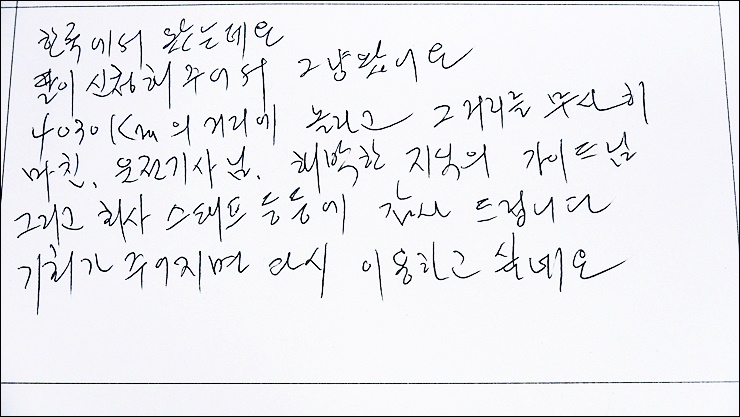 한국에서 왔는데요
딸이 신청해 주어서 그냥 왔어요
4030Km의 거리에 놀라고 그 거리를 무사히
마친, 운전기사님, 해박한 지식의 가이드님
그리고 회사 스태프 등등에 감사 드립니다
기회가 주어지면 다시 이용하고 싶네요